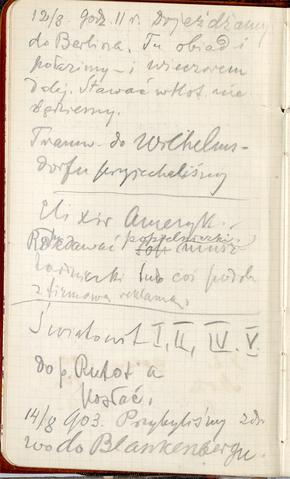 12/8. godz. 11 r. Dojeżdżamy
do Berlina. Tu obiad i
połazimy – i wieczorem
dalej. Stawać wkoł. nie
będziemy.
Tramw. do Wilhelms-
dorfu przyjechaliśmy
Elixir Ameryk.
Rozdawać popielniczki,
lub coś podob
z firmową reklamą.
Światowit I, II, IV. V
do p. Rutot a
posłać.
14/8 903. Przybyliśmy zdr
wo do Blankenbergu.